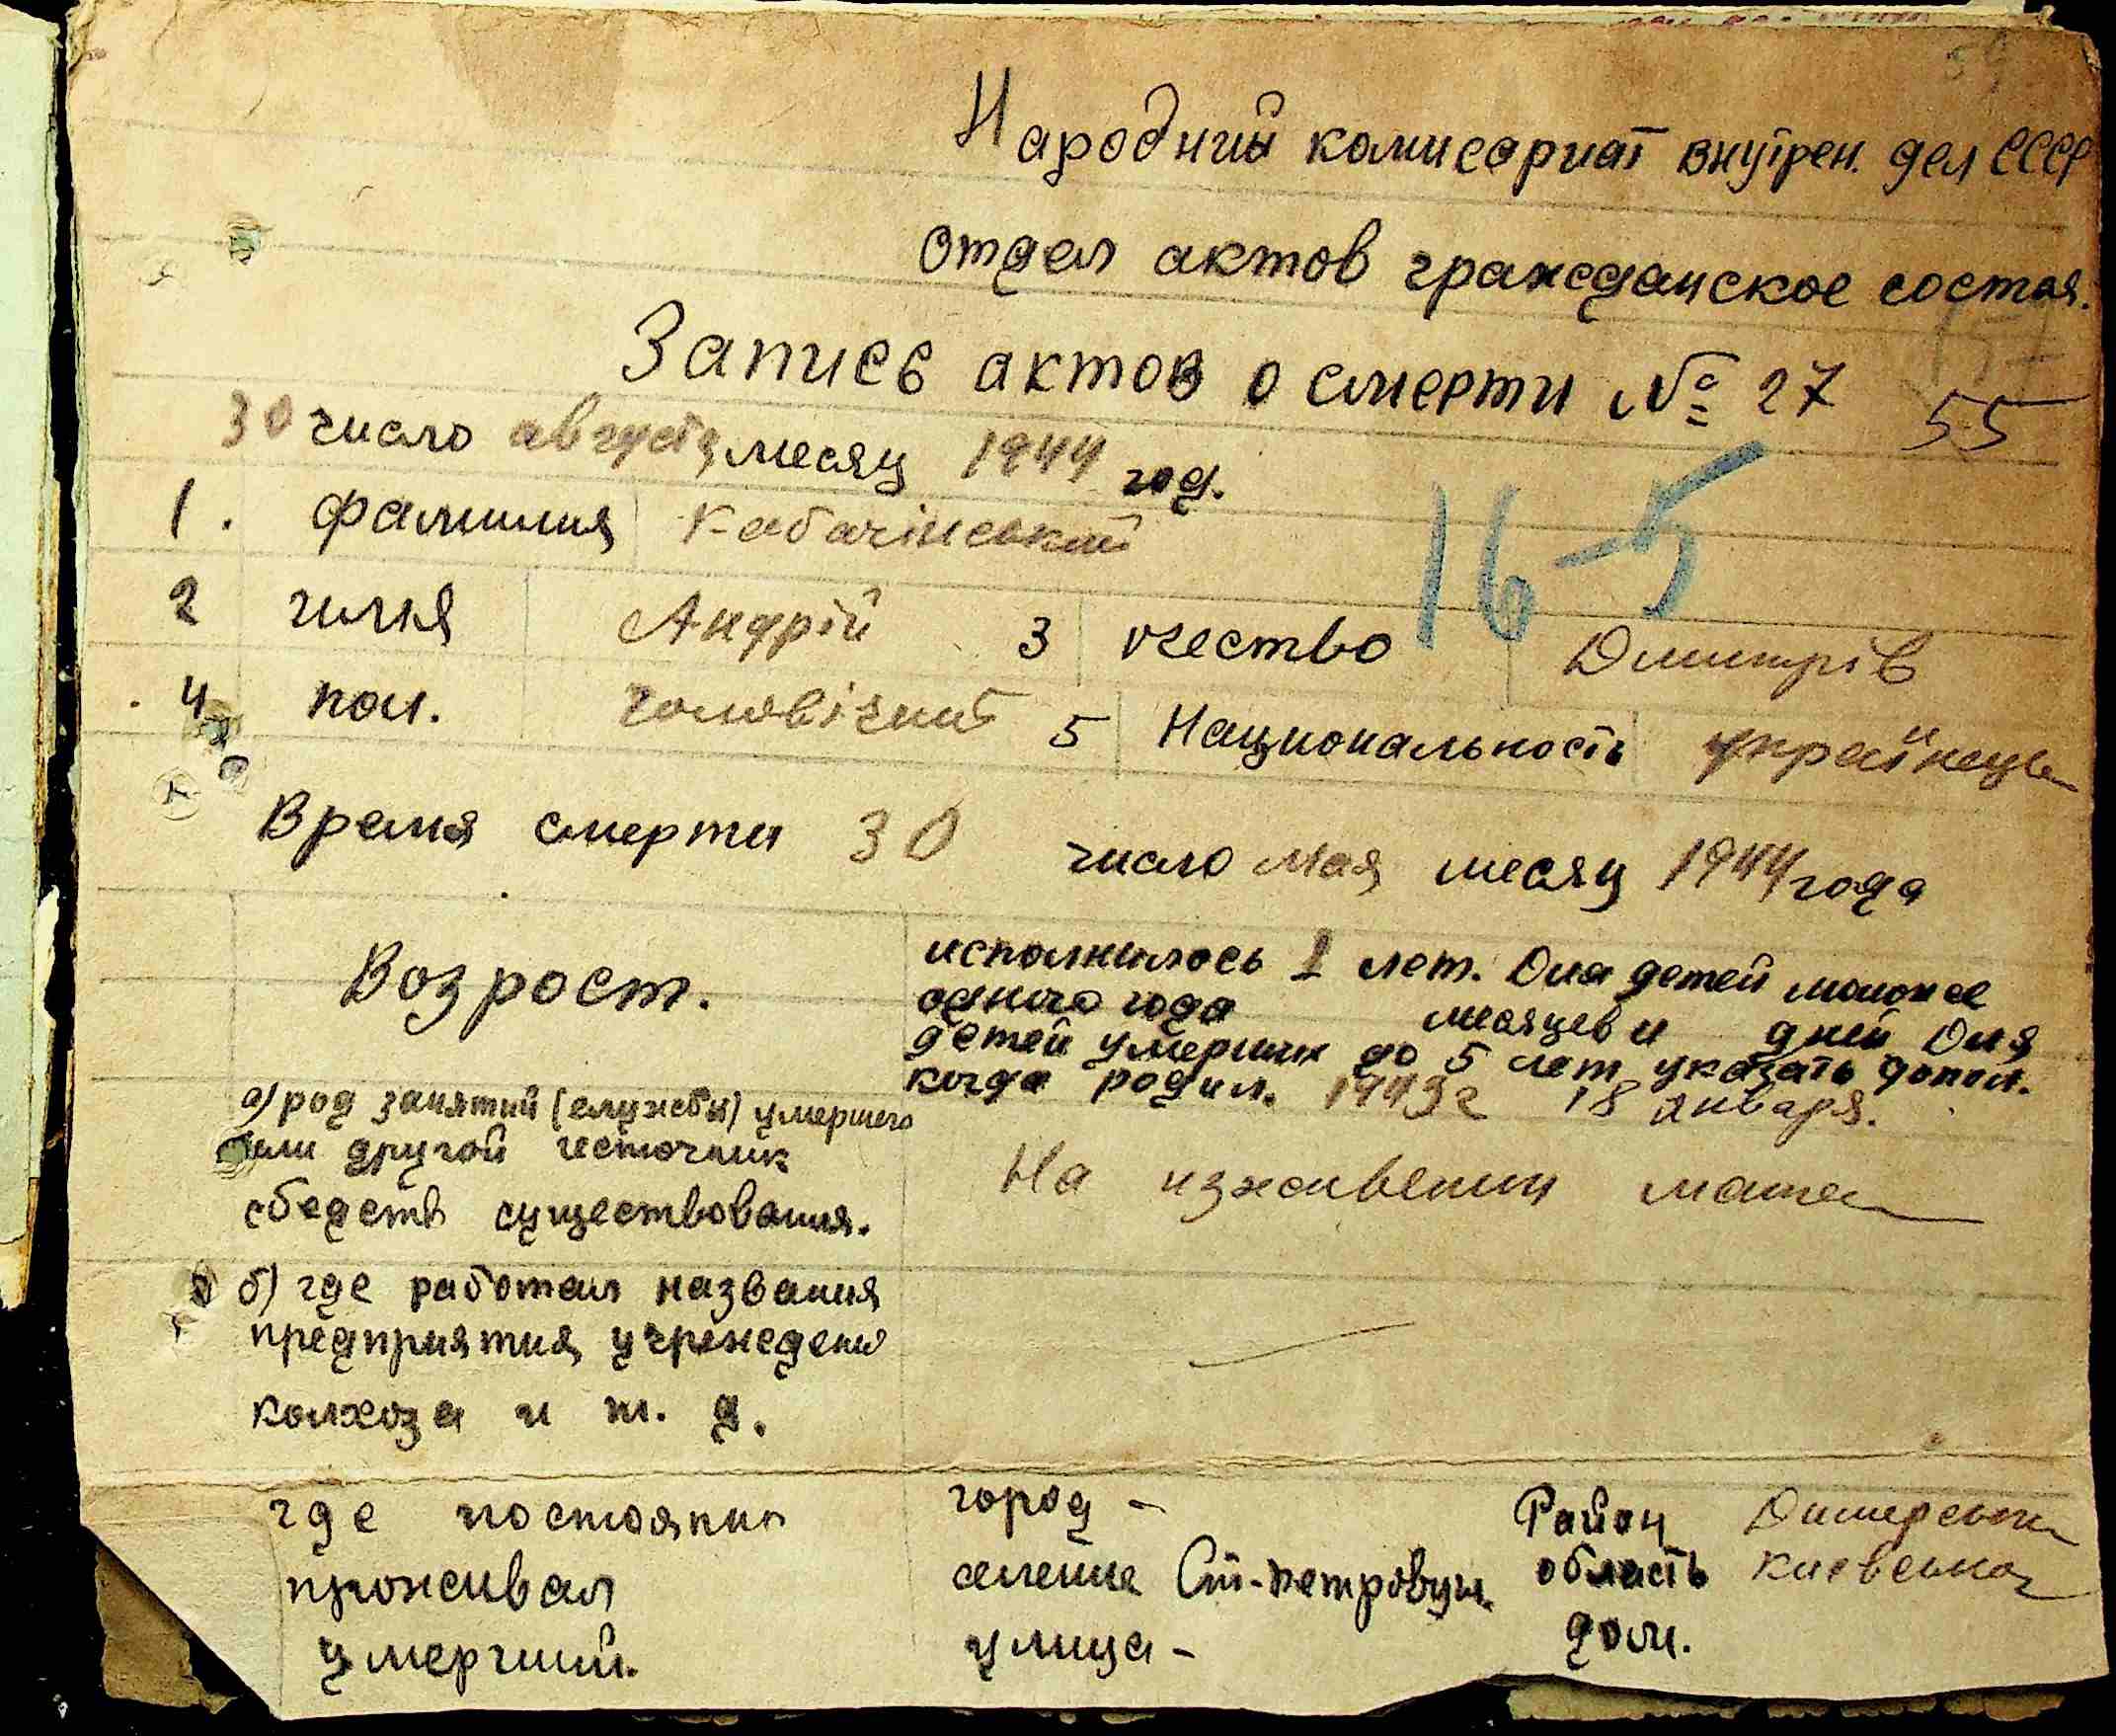 Народний комисариат внутрен. дел СССР
отдел актов гражданское состоя.
Запись актов о смерти № 27
55
30 число августа месяц 1944 год.
16-5
1. фамилия Кабачінський
2 имя Андрій 3 очество Дмитрів
4 пол. чоловічий 5 Национальность українець
Время смерти 30 число мая месяц 1944 года
Возрост. исполнилось 1 лет. Для детей моложе
одного года месяцев и дней Для
детей умерших до 5 лет указать допол.
когда родил. 1943 г 18 января.
а) род занятий (службы) умершего
или другой источник
сбедств существования.
На изживении матери
б) где работал названия
предприятия, учреждени
колхоза и т. д.
где постоянно
проживал
умерший.
город -
селение Ст-петровцы.
улица -
Район Димерський
область Киевська
дом.